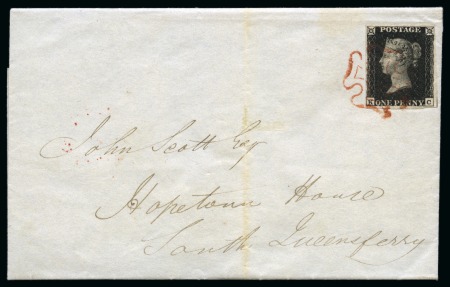 POSTAGE
ONE PENNY
John Scott Esq
Hopetoun House
South Queensferry